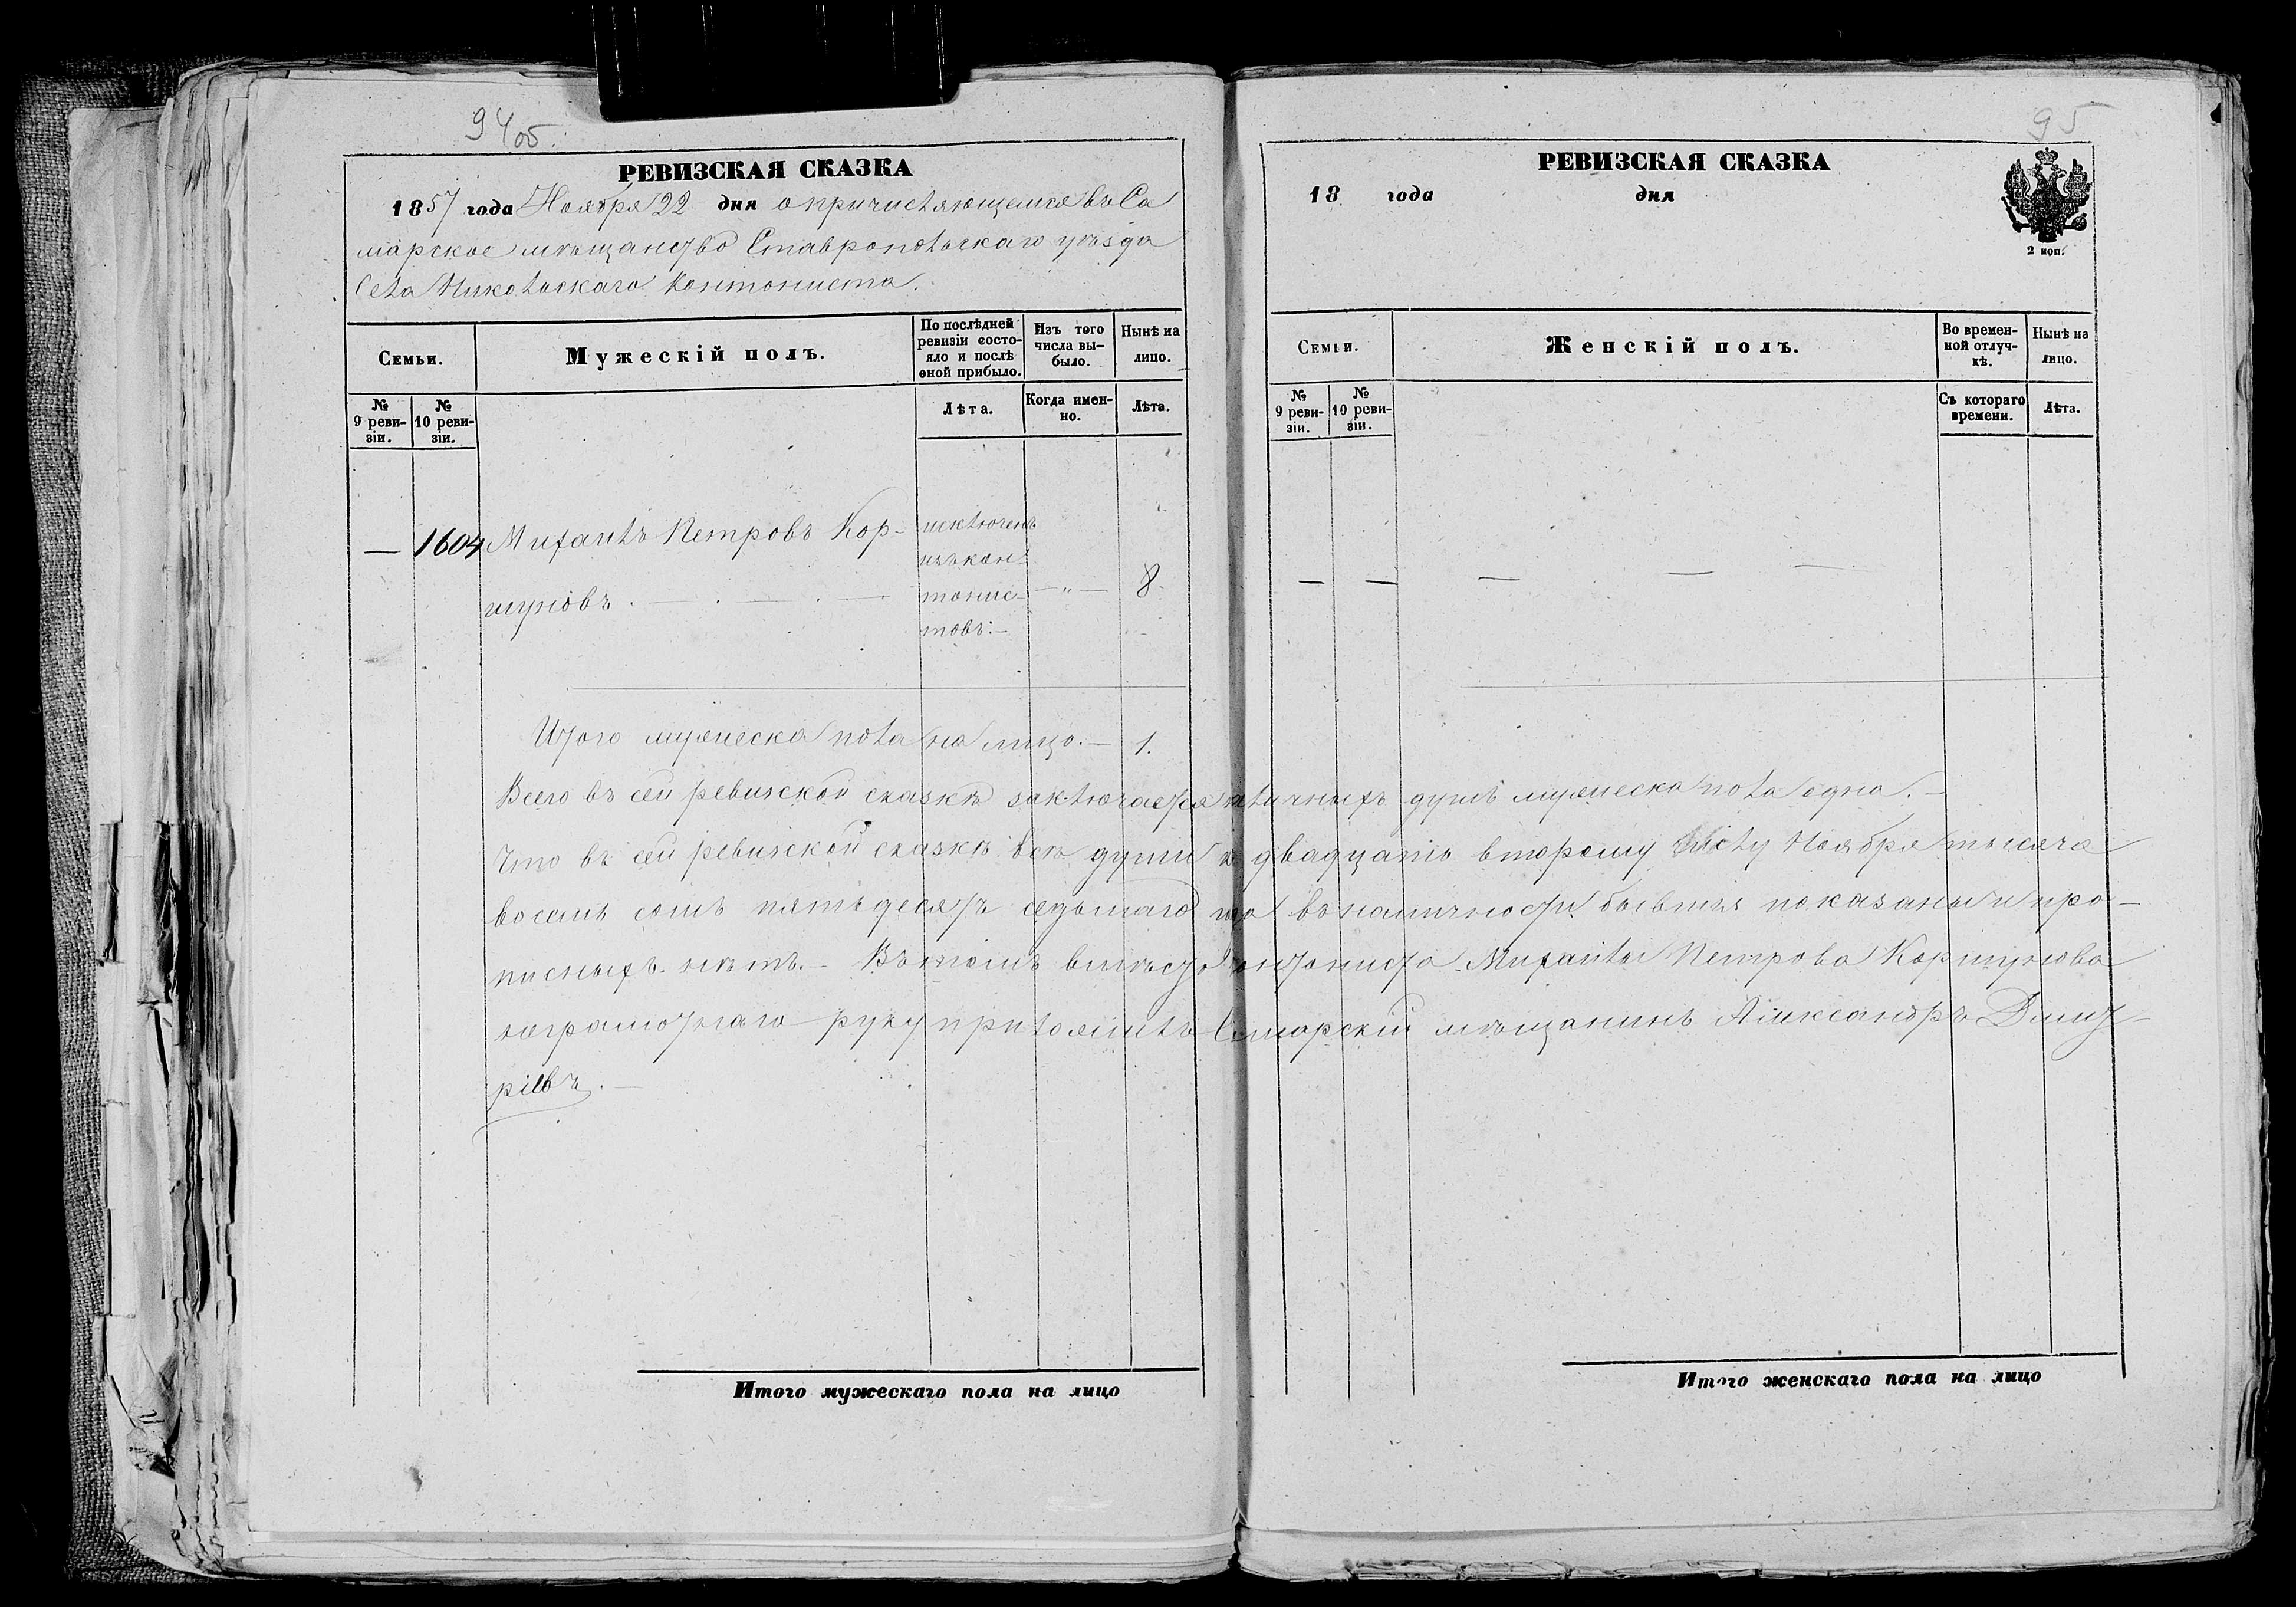 94об.
РЕВИЗСКАЯ СКАЗКА
1857 года Ноября 22 дня о причисляющемся въ Са
марское мѣщанство Ставропольскаго уѣзда
Села Никольскаго Кантониста.
Семьи.
Мужескій полъ.
По послѣдней ревизіи состояло и послѣ оной прибыло.
Изъ того числа выбыло.
Нынѣ на лицо.
№ 9 ревизіи.
№ 10 ревизіи.
Лѣта.
Когда именно.
Лѣта.
— 1604 Михаилъ Петровъ Кор-
шуновъ . — . — . —
исключенъ
изъ кан-
тонис-
товъ. —
— „ —
8.
Итого мужеска пола на лицо. — 1.
95
РЕВИЗСКАЯ СКАЗКА
18 года дня
2 коп.
Семьи.
Женскій полъ.
Во временной отлучкѣ.
Нынѣ на лицо.
№ 9 ревизіи.
№ 10 ревизіи.
Съ котораго времени.
Лѣта.
— — — — —
Всего въ сей ревизской сказкѣ заключается личныхъ душъ мужеска пола одна. —
Что въ сей ревизской сказкѣ всѣ души къ двадцать второму числу Ноября тысяча
восемь сотъ пятьдесятъ седьмаго въ наличности бывшія показаны и про-
писныхъ нѣтъ. — Въ томъ вмѣсто кантониста Михаилы Петрова Коршунова
неграмотнаго руку приложилъ Самарскій мѣщанинъ Александръ Дмит-
ріевъ. —
Итого мужескаго пола на лицо
Итого женскаго пола на лицо